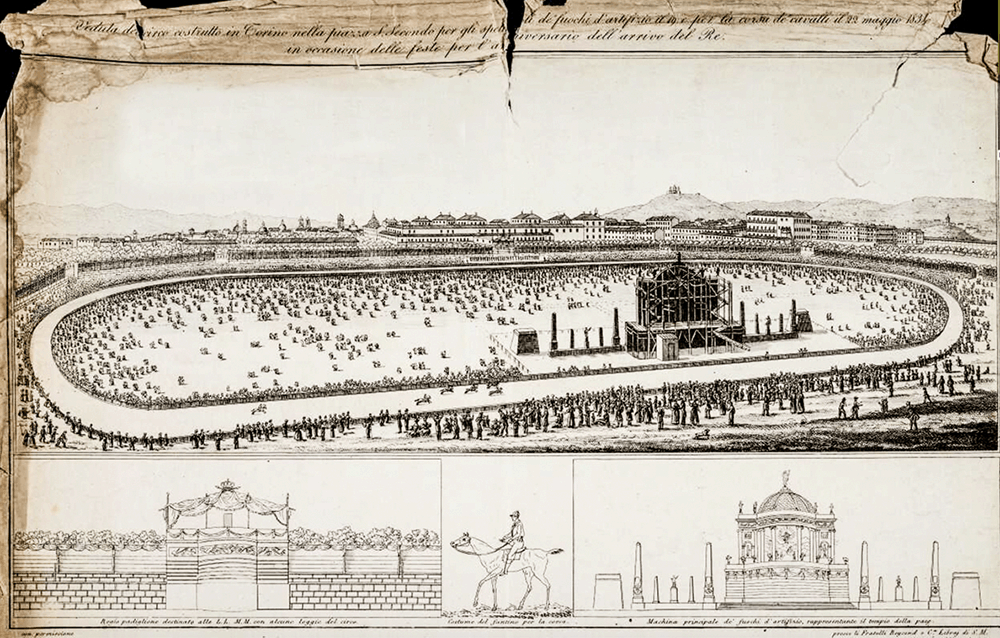 Veduta del circo costrutto in Torino nella piazza S. Secondo per gli spet li de' fuochi d'artifizio il 19 e per la corsa de' cavalli il 22 maggio 183
in occasione delle feste per l'a niversario dell'arrivo del Re.
Regio padiglione destinato alle L.L. M.M. con alcune loggie del circo.
Costume del fantino per la corsa.
Machina principale de' fuochi d'artifizio, rappresentante il tempio della pace
con permissione
presso li Fratelli Reycend e C.ia Libraj di S.M.